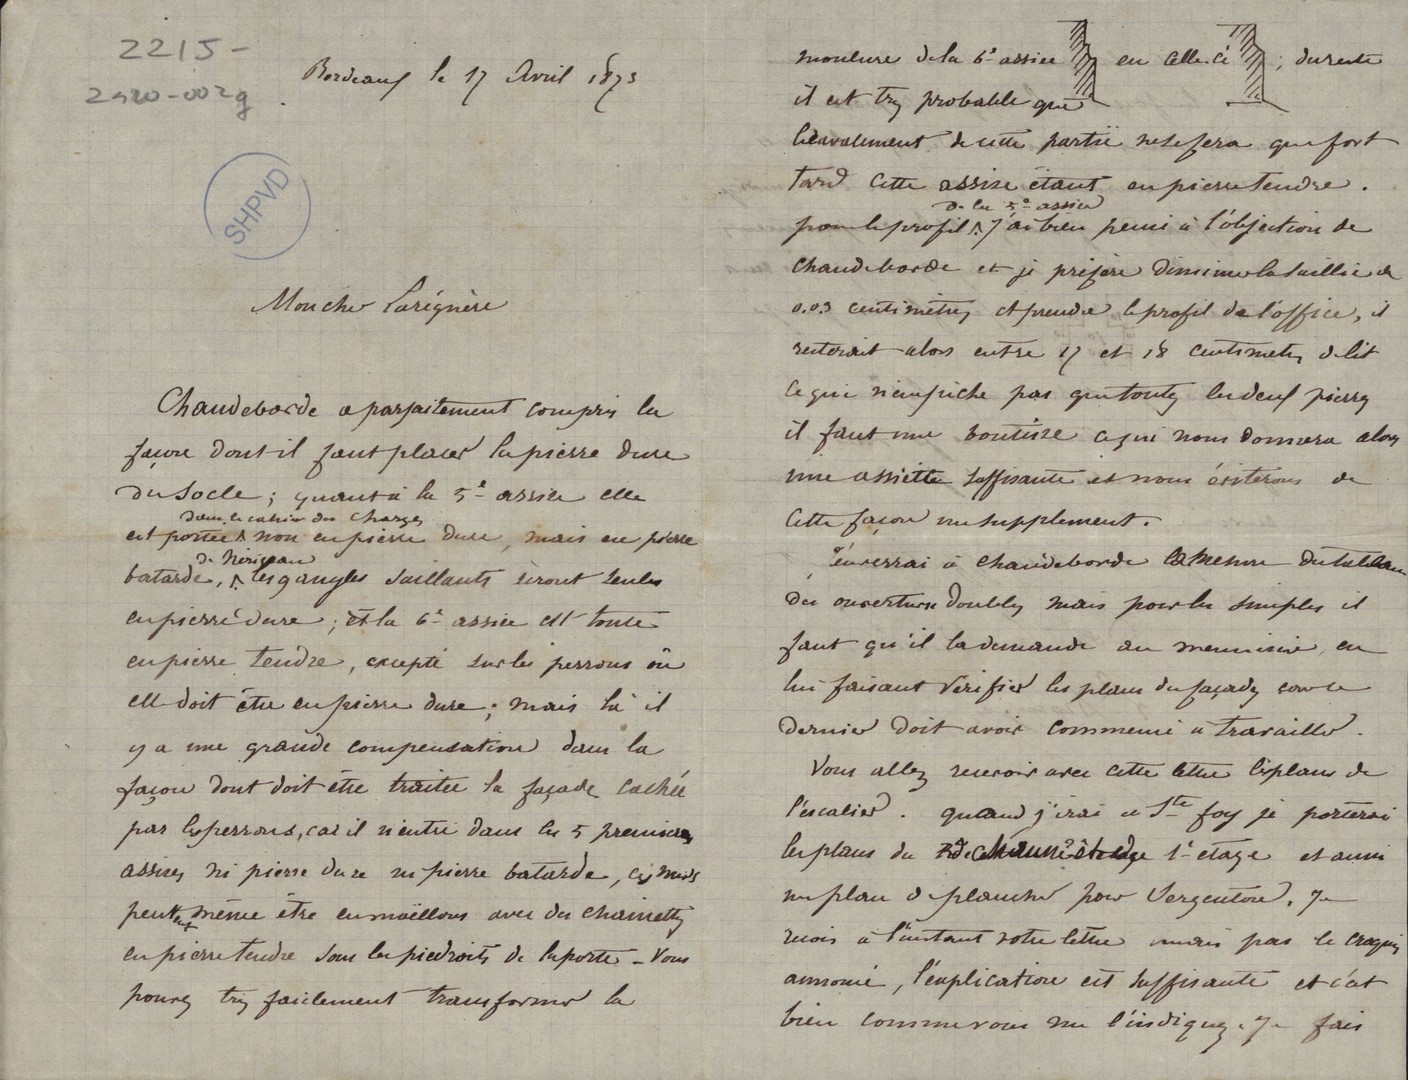 2215-
2920-002g
SHPVD
Bordeaux le 17 Avril 1873
Mon cher Larégnère
Chaudeborde a parfaitement compris la
façon dont il faut placer la pierre dure
du socle ; quant à la 5e assise elle
dans le cahier des charges
est portée non en pierre dure, mais en pierre
de Nérigean
batarde, les angles saillants seront seules
en pierre dure ; et la 6e assise est toute
en pierre tendre, excepté sur les perrons où
elle doit être en pierre dure ; mais là il
y a une grande compensation dans la
façon dont doit être traitée la façade cachée
par les perrons, car il n'entre dans les 5 premières
assises ni pierre dure ni pierre batarde, ces murs
peuvent même être en moëllons avec des chainettes
en pierre tendre sous les piedroits de la porte - Vous
pouvez très facilement transformer la
moulure de la 6e assise en celle ci ; du reste
il est très probable que
le ravalement de cette partie ne se fera que fort
tard cette assise étant en pierre tendre.
de la 5e assise
pour le profil j'ai bien pensé à l'objection de
chaudeborde et je préfère diminuer la saillie de
0.03 centimètres et prendre le profil de l'office, il
resterait alors entre 17 et 18 centimetres de lit
ce qui n'empêche pas que toutes les deux pierres
il faut une boutisse ce qui nous donnera alors
une assiette suffisante et nous éviterons de
cette façon un supplement.
J'enverrai à chaudeborde la mesure du tableau
des ouvertures doubles mais pour les simples il
faut qu'il la demande au menuisier en
lui faisant vérifier les plans des façades car ce
dernier doit avoir commencé à travailler.
Vous allez recevoir avec cette lettre les plans de
l'escalier. quand j'irai à Ste foy je porterai
les plans du 1er étage et aussi
un plan de plancher pour Vergentore. Je
reçois à l'instant votre lettre mais pas le croquis
annoncé, l'explication est suffisante et c'est
bien comme vous me l'indiquez. Je fais